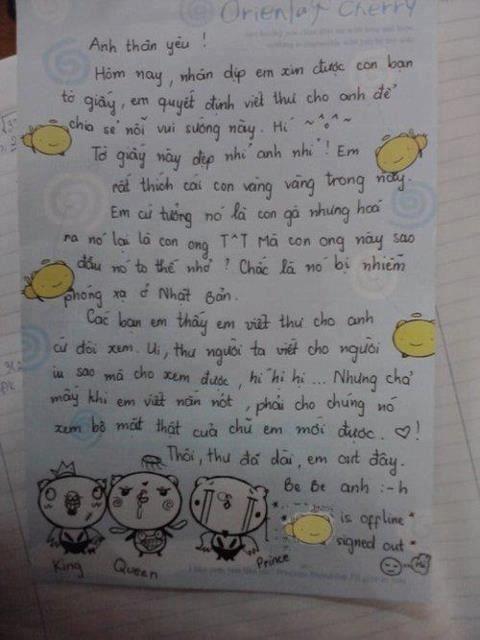 Oriental Cherry
Anh thân yêu !
Hôm nay, nhân dịp em xin được con bạn
tờ giấy, em quyết định viết thư cho anh để
chia sẻ nỗi vui sướng này. Hí ~^o^~
Tờ giấy này đẹp nhỉ anh nhỉ ! Em
rất thích cái con vàng vàng trong này.
Em cứ tưởng nó là con gà nhưng hoá
ra nó lại là con ong T^T Mà con ong này sao
đầu nó to thế nhở ? Chắc là nó bị nhiễm
phóng xạ ở Nhật Bản.
Các bạn em thấy em viết thư cho anh
cứ đòi xem. Ui, thư người ta viết cho người
iu sao mà cho xem được, hí hí hí ... Nhưng chả
mấy khi em viết nắn nót, phải cho chúng nó
xem bộ mặt thật của chữ em mới được.. ♡!
Thôi, thư đã dài, em out đây.
Be Be anh :-h
is offline *
signed out *
King
Queen
Prince